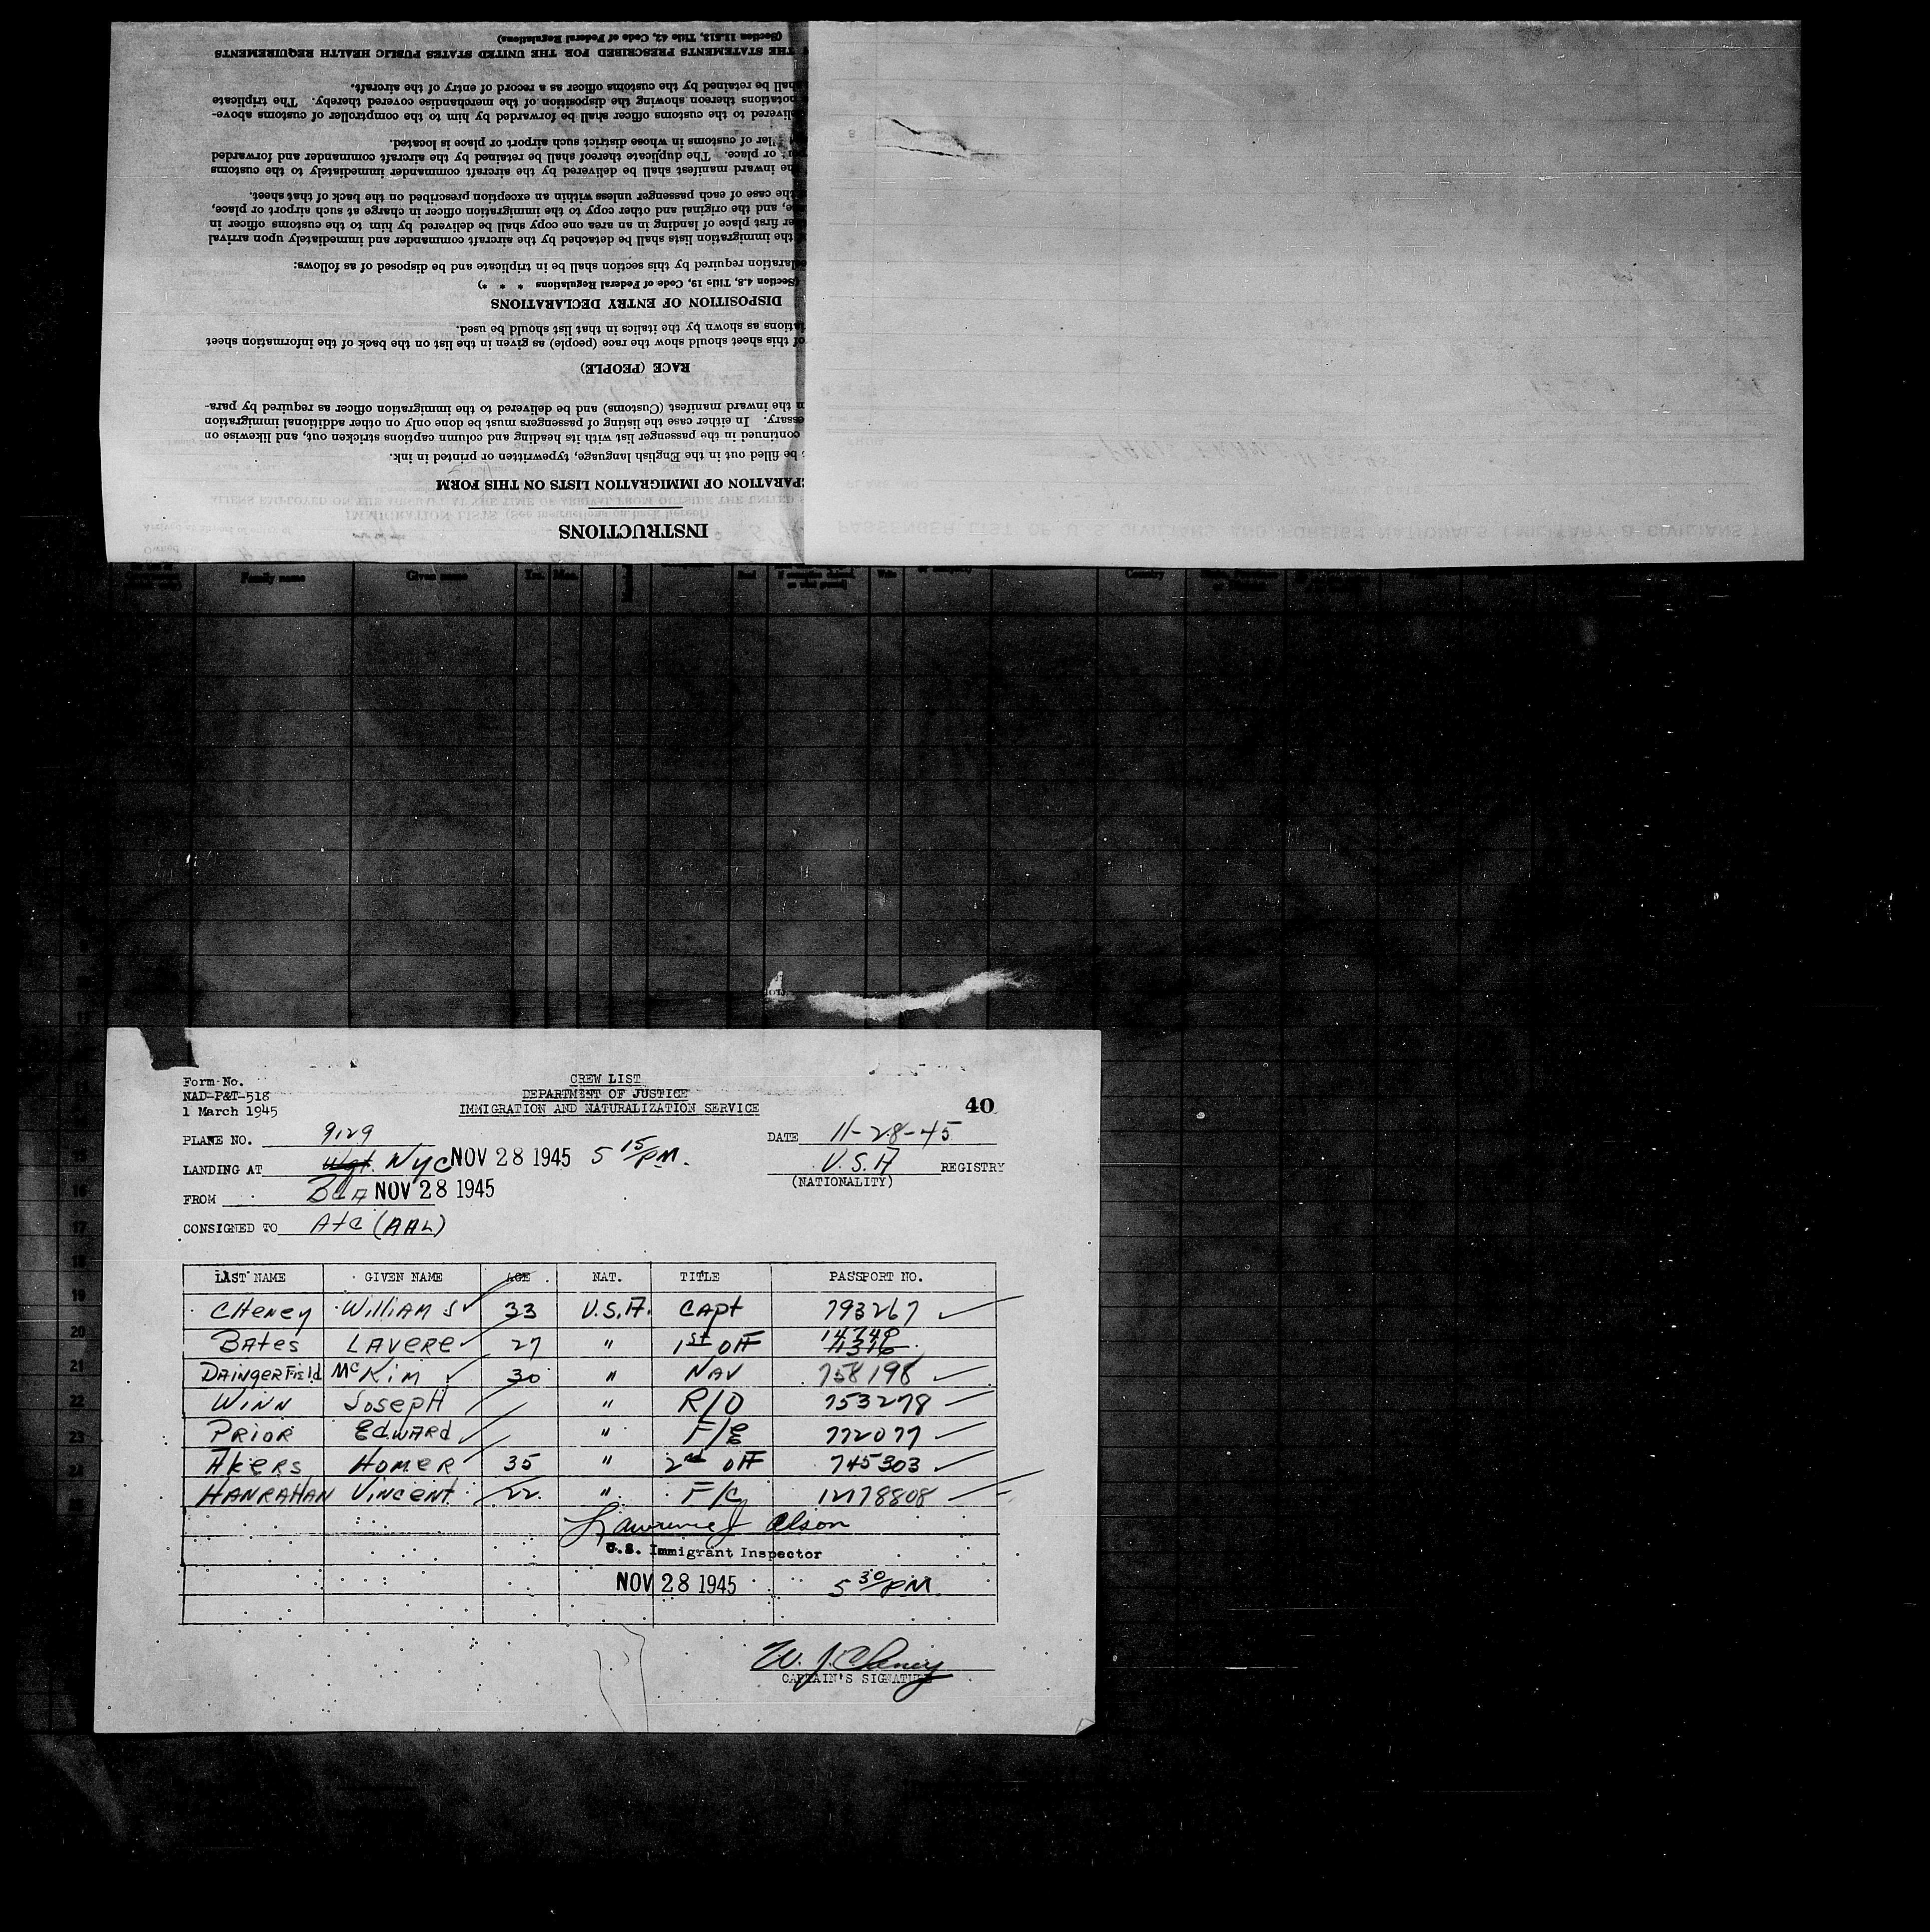 INSTRUCTIONS
PARATION OF IMMIGRATION LISTS ON THIS FORM
be filled out in the English language, typewritten or printed in ink.
continued in the passenger list with its heading and column captions stricken out, and likewise on
essary. In either case the listing of passengers must be done only on other additional immigration
n the inward manifest (Customs) and be delivered to the immigration officer as required by para-
RACE (PEOPLE)
of this sheet should show the race (people) as given in the list on the back of the information sheet
iations as shown by the italics in that list should be used.
DISPOSITION OF ENTRY DECLARATIONS
(Section 4.8, Title 19, Code of Federal Regulations * * *)
claration required by this section shall be in triplicate and be disposed of as follows:
the immigration lists shall be detached by the aircraft commander and immediately upon arrival
er first place of landing in an area one copy shall be delivered by him to the customs officer in
ge, and the original and other copy to the immigration officer in charge at such airport or place,
the case of each passenger unless within an exception prescribed on the back of that sheet.
he inward manifest shall be delivered by the aircraft commander immediately to the customs
or place. The duplicate thereof shall be retained by the aircraft commander and forwarded
ller of customs in whose district such airport or place is located.
delivered to the customs officer shall be forwarded by him to the comptroller of customs above-
notations thereon showing the disposition of the merchandise covered thereby. The triplicate
shall be retained by the customs officer as a record of entry of the aircraft.
THE STATEMENTS PRESCRIBED FOR THE UNITED STATES PUBLIC HEALTH REQUIREMENTS
(Section 11.513, Title 42, Code of Federal Regulations)
Family name Given name Yrs. Mos. Read Country
Form No.
NAD-P&T-518
1 March 1945
CREW LIST
DEPARTMENT OF JUSTICE
IMMIGRATION AND NATURALIZATION SERVICE
40
PLANE NO. 9129 DATE 11-28-45
LANDING AT Wgt. NYC NOV 28 1945 5 15/PM. U.S.A REGISTRY
(NATIONALITY)
FROM BDA NOV 28 1945
CONSIGNED TO AtC (AAL)
LAST NAME GIVEN NAME AGE NAT. TITLE PASSPORT NO.
CHeney William S 33 U.S.A. CApt 793267
BAtes LAVERE 27 " 1st Off 14740 11316
DAingerField McKim 30 " NAV 758198
Winn JosepH " R/O 753278
PRIOR EdwARd " F/E 772077
AkeRs HOMeR 35 " 2nd Off 745303
HANRAHAN VinceNt 22 " F/C 12178808
Lawrence J Olson
U.S. Immigrant Inspector
NOV 28 1945 5 30/PM.
W. J. Cheney
CAPTAIN'S SIGNATURE